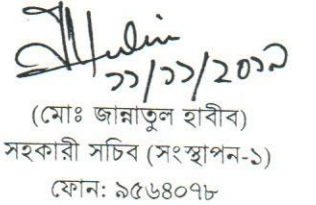 ১১/১১/২০১৯
(মোঃ জান্নাতুল হাবীব)
সহকারী সচিব (সংস্থাপন-১)
ফোন: ৯৫৬৪০৭৮